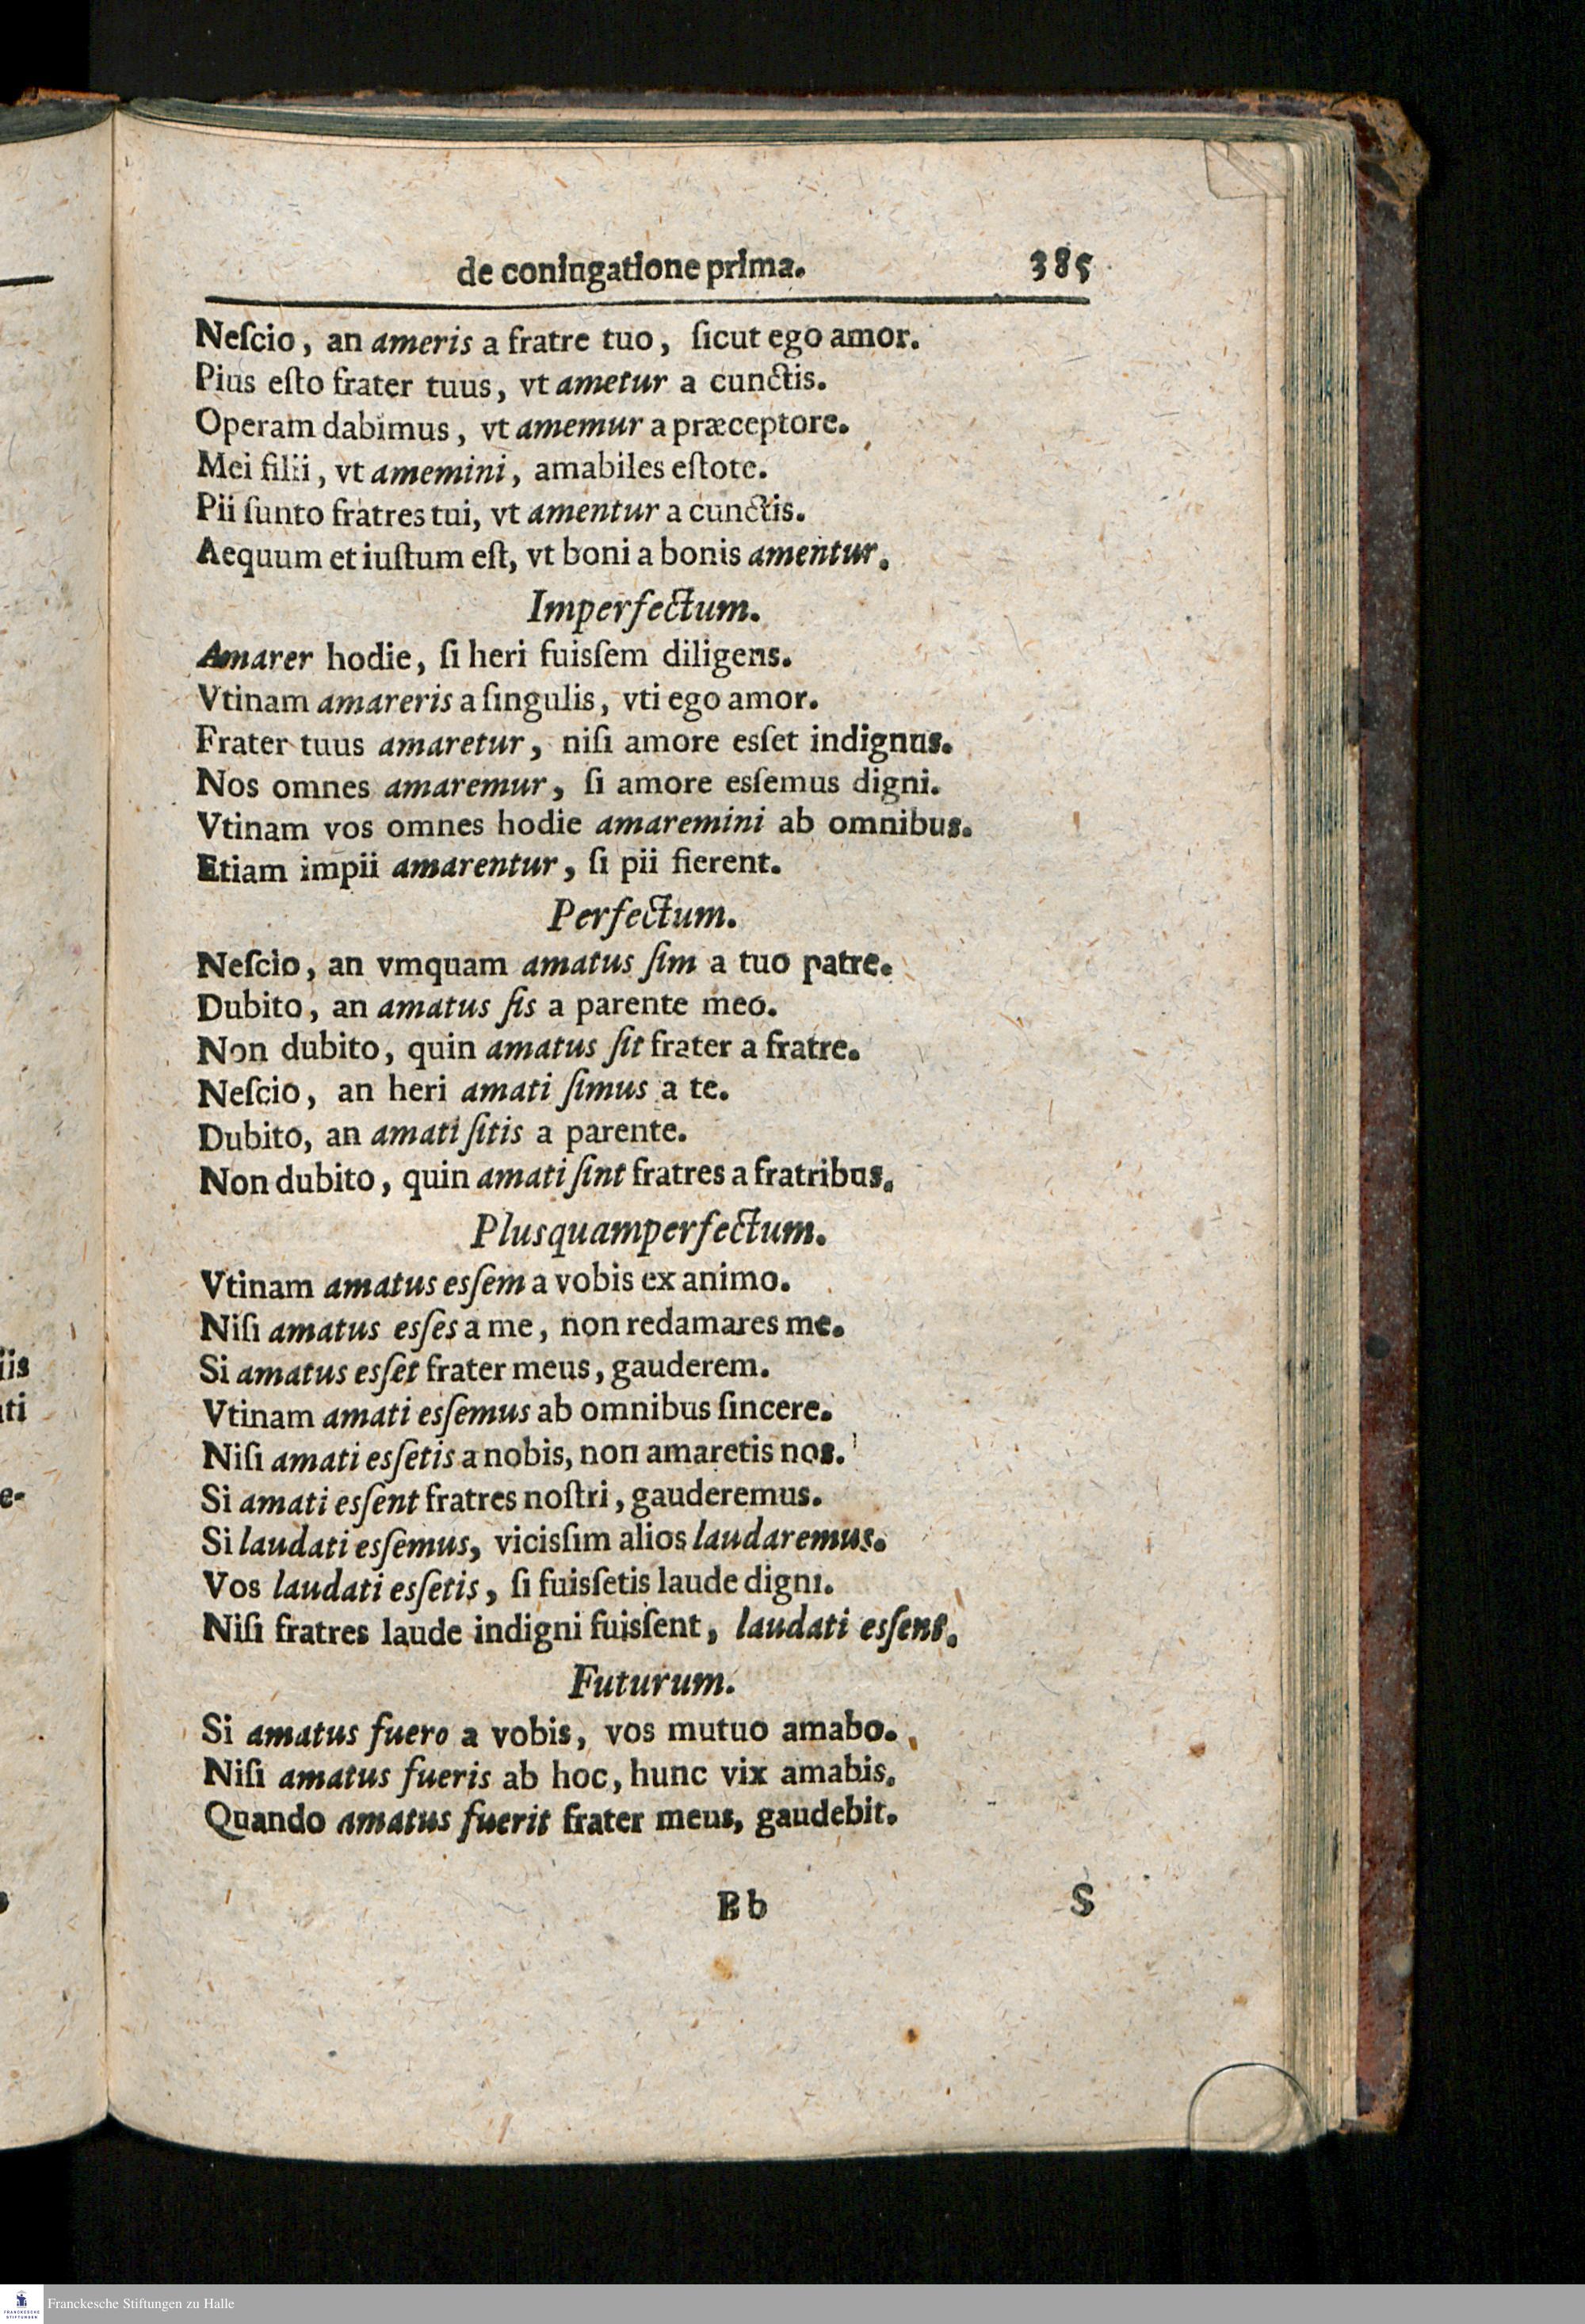 de coniugatione prima. 385
Neſcio, an ameris a fratre tuo, ſicut ego amor.
Pius eſto frater tuus, vt ametur a cunctis.
Operam dabimus, vt amemur a præceptore.
Mei filii, vt amemini, amabiles eſtote.
Pii ſunto fratres tui, vt amentur a cunctis.
Aequum et iuſtum eſt, vt boni a bonis amentur.
Imperfectum.
Amarer hodie, ſi heri fuisſem diligens.
Vtinam amareris a ſingulis, vti ego amor.
Frater tuus amaretur, niſi amore esſet indignus.
Nos omnes amaremur, ſi amore esſemus digni.
Vtinam vos omnes hodie amaremini ab omnibus.
Etiam impii amarentur, ſi pii fierent.
Perfectum.
Neſcio, an vmquam amatus ſim a tuo patre.
Dubito, an amatus ſis a parente meo.
Non dubito, quin amatus ſit frater a fratre.
Neſcio, an heri amati ſimus a te.
Dubito, an amati ſitis a parente.
Non dubito, quin amati ſint fratres a fratribus.
Plusquamperfectum.
Vtinam amatus esſem a vobis ex animo.
Niſi amatus esſes a me, non redamares me.
Si amatus esſet frater meus, gauderem.
Vtinam amati esſemus ab omnibus ſincere.
Niſi amati esſetis a nobis, non amaretis nos.
Si amati esſent fratres noſtri, gauderemus.
Si laudati esſemus, vicisſim alios laudaremus.
Vos laudati esſetis, ſi fuisſetis laude digni.
Niſi fratres laude indigni fuisſent, laudati esſent.
Futurum.
Si amatus fuero a vobis, vos mutuo amabo.
Niſi amatus fueris ab hoc, hunc vix amabis.
Quando amatus fuerit frater meus, gaudebit.
Bb S
iis
ti
e-
FRANCKESCHE
STIFTUNGEN
Franckesche Stiftungen zu Halle